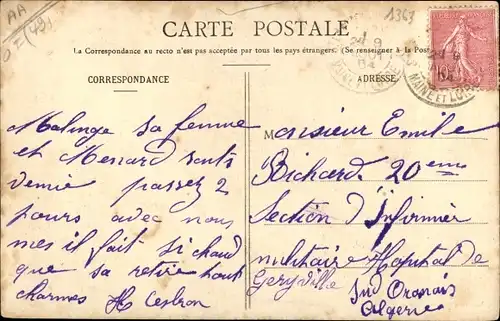 AA
(49)
1363
CARTE POSTALE
La Correspondance au recto n'est pas acceptée par tous les pays étrangers. (Se renseigner à la Poste
CORRESPONDANCE
ADRESSE
MAINE ET LOIRE
10
Malinge sa femme
et Menard sont
venue passez 2
jours avec nous
mes il fait si chaud
que sa retire tout
charmes H Cesbron
Monsieur Emile
Bichard 20eme
Section d'Infirmier
militaire Hopital de
Geryville
Sud Oranais
Algerie